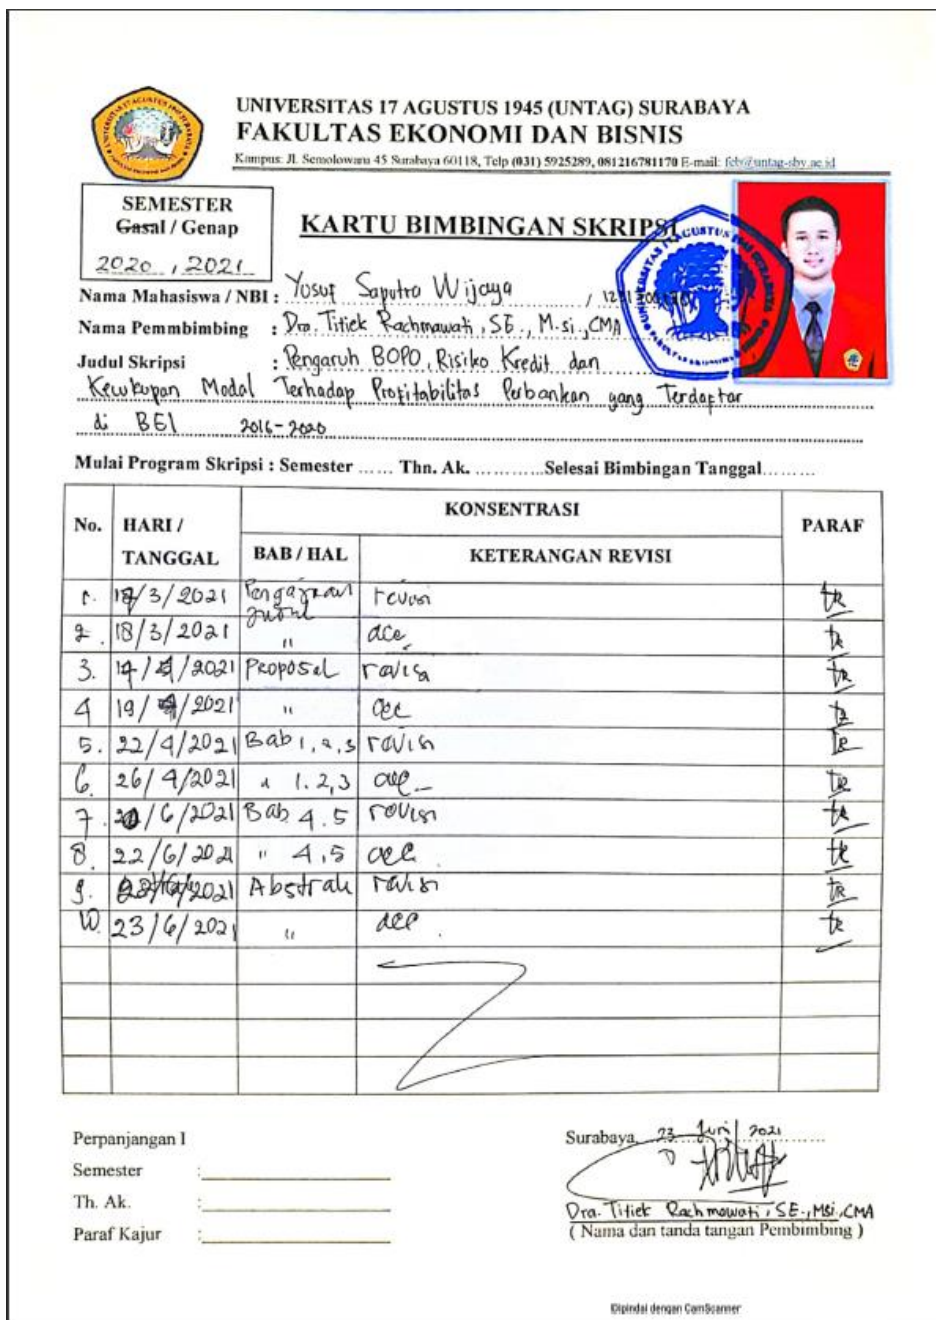 UNIVERSITAS 17 AGUSTUS 1945 (UNTAG) SURABAYA
FAKULTAS EKONOMI DAN BISNIS
Kampus: Jl. Semolowaru 45 Surabaya 60118, Telp (031) 5925289, 081216781170 E-mail: feb@untag-sby.ac.id
SEMESTER
Gasal / Genap
2020 , 2021
KARTU BIMBINGAN SKRIPSI
Nama Mahasiswa / NBI : Yosuf Saputra Wijaya /
Nama Pemmbimbing : Dra. Titiek Rachmawati, SE., M.si., CMA
Judul Skripsi : Pengaruh BOPO, Risiko Kredit dan
Kecukupan Modal Terhadap Profitabilitas Perbankan yang Terdaftar
di BEI 2016-2020
Mulai Program Skripsi : Semester ...... Thn. Ak. ............Selesai Bimbingan Tanggal.........
No. HARI / TANGGAL KONSENTRASI PARAF
BAB / HAL KETERANGAN REVISI
1. /3/2021 Pengajuan Judul revisi tr
2. 18/3/2021 " acc tr
3. /2021 Proposal revisi tr
4 19/ /2021 " acc tr
5. 22/4/2021 Bab 1, 2, 3 revisi tr
6. 26/4/2021 " 1.2,3 acc tr
7. /6/2021 Bab 4.5 revisi tr
8. 22/6/2021 " 4,5 acc tr
9. /2021 Abstrak revisi tr
10. 23/6/2021 " acc tr
Perpanjangan I
Semester :
Th. Ak. :
Paraf Kajur :
Surabaya, 23 Juni 2021
Dra. Titiek Rachmawati, SE., MSi., CMA
( Nama dan tanda tangan Pembimbing )
Dipindai dengan CamScanner